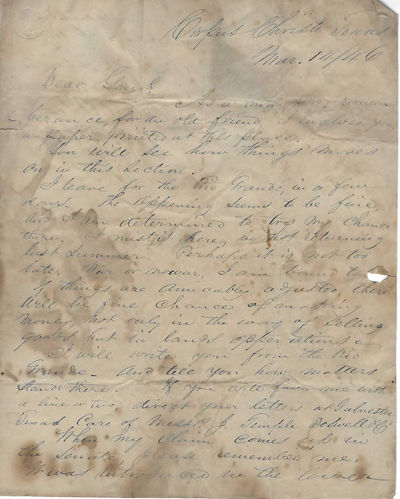 Corpus Christi Texas
Mar. 14/46
Dear Genl.
As a small
for an old friend, I inclose you
a paper printed at this place.
You will see how things moves
on in this Section.
I leave for the Rio Grande, in a few
days. The oppening seems to be fine
and I am determined to try my chance
there. I mist it here, in not returning
last Summer. Perhaps it is not too
late. War or no war, I am bound to
If things are amicably adjusted, there
will be fine chance of makin
money, not only in the way of selling
goods, but in lands opperations &
I will write you from the Rio
Grande and tell you how matters
stands there. If you will favor me with
a line or two, direct your letters at Galveston
Texas, Care of Messrs
When my Claim comes up in
the Senate please remember me.
It was introduced in the lower